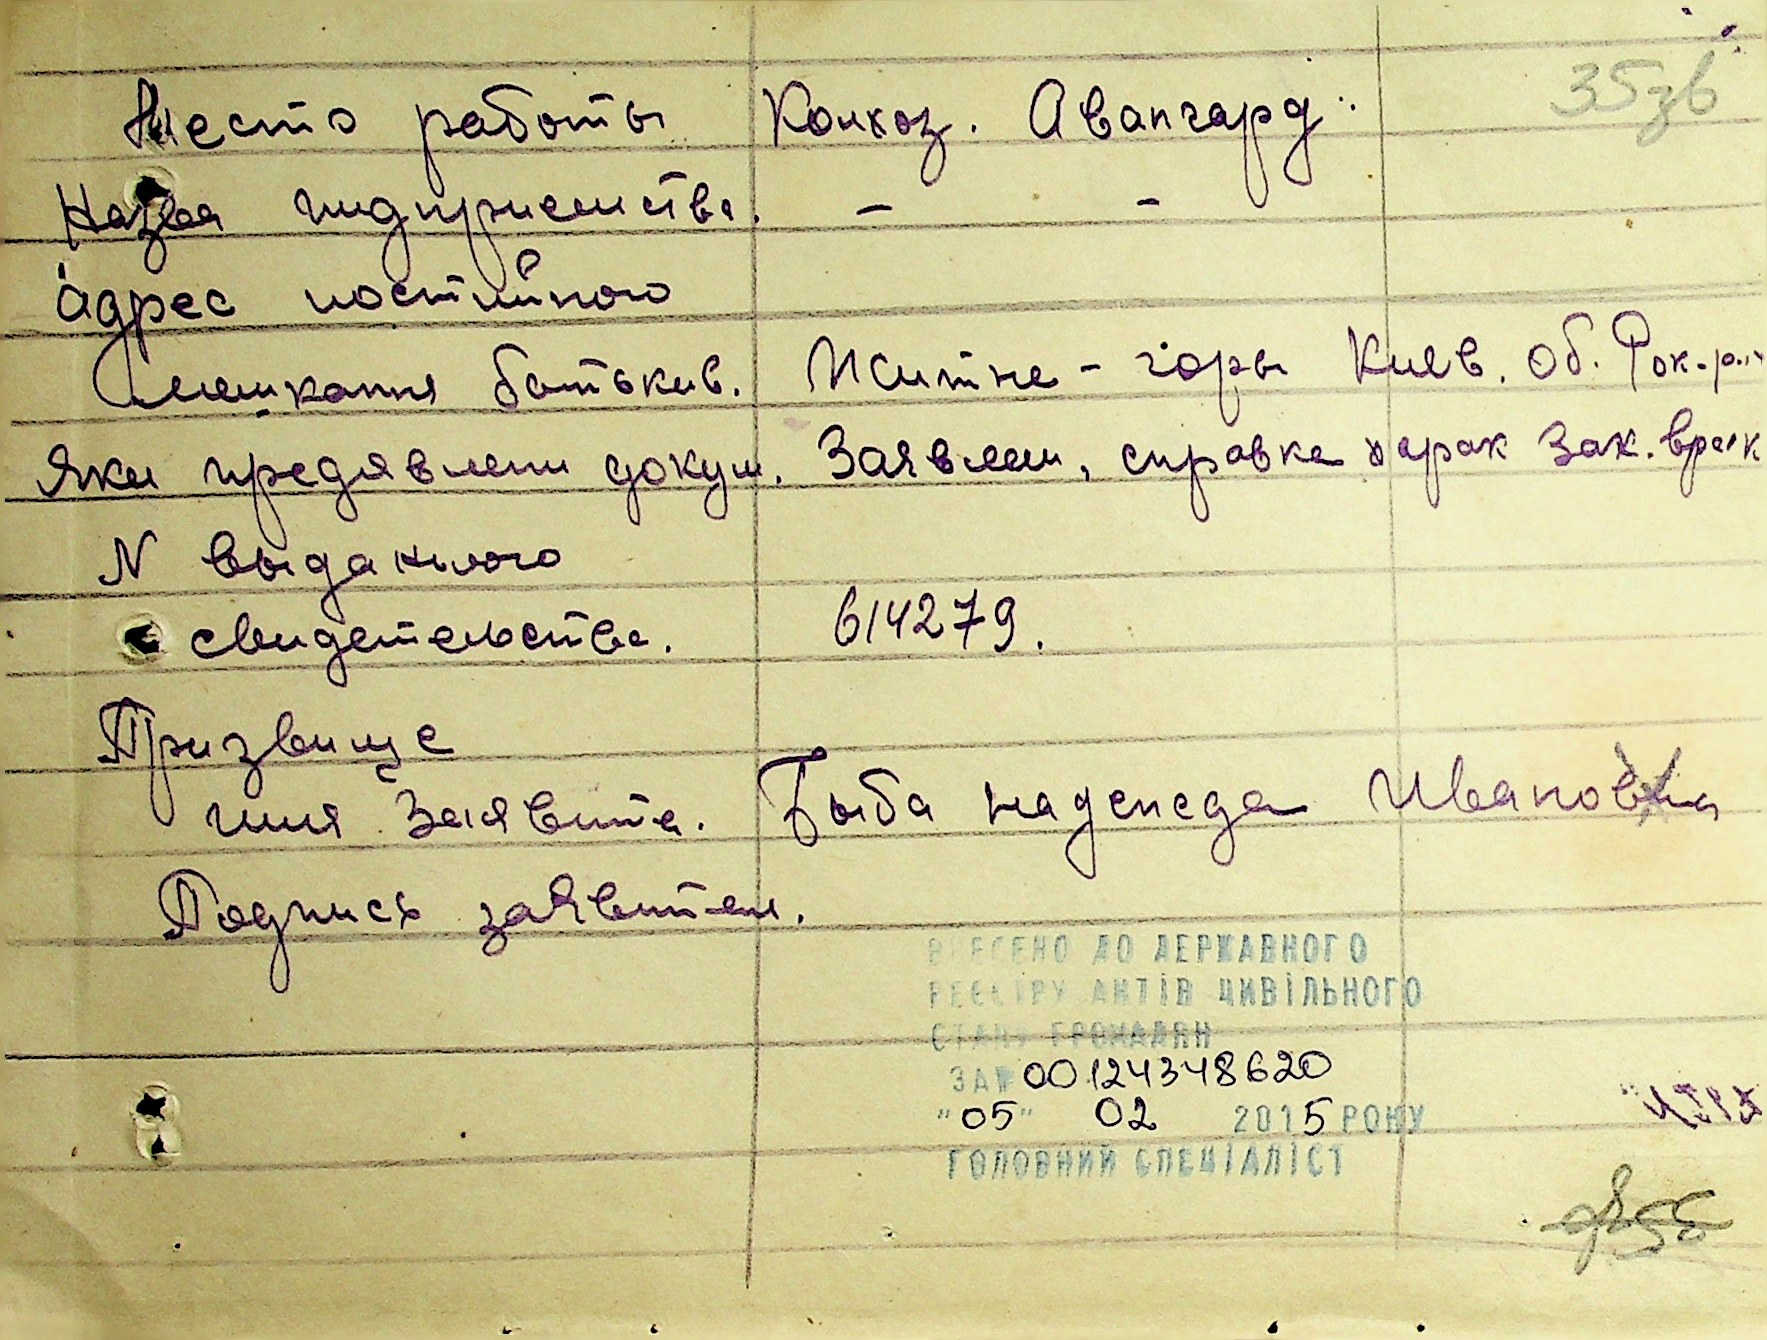 35зв
Место работы Колхоз. Авангард
Назва пидприемства. - -
адрес постийного
мешкання батькив. Житне - горы Киев. Об. Рок. р-н
Яки предявлени докум. Заявлен, справка
N выданного
свидетельства. 614279.
Призвище
имя Заявите. Рыба надежда Ивановна
Подпись заявителя.
ВНЕСЕНО ДО ДЕРЖАВНОГО
РЕЄСТРУ АКТІВ ЦИВІЛЬНОГО
СТАНУ ГРОМАДЯН
ЗА № 00124348620
"05" 02 2015 РОКУ
ГОЛОВНИЙ СПЕЦІАЛІСТ